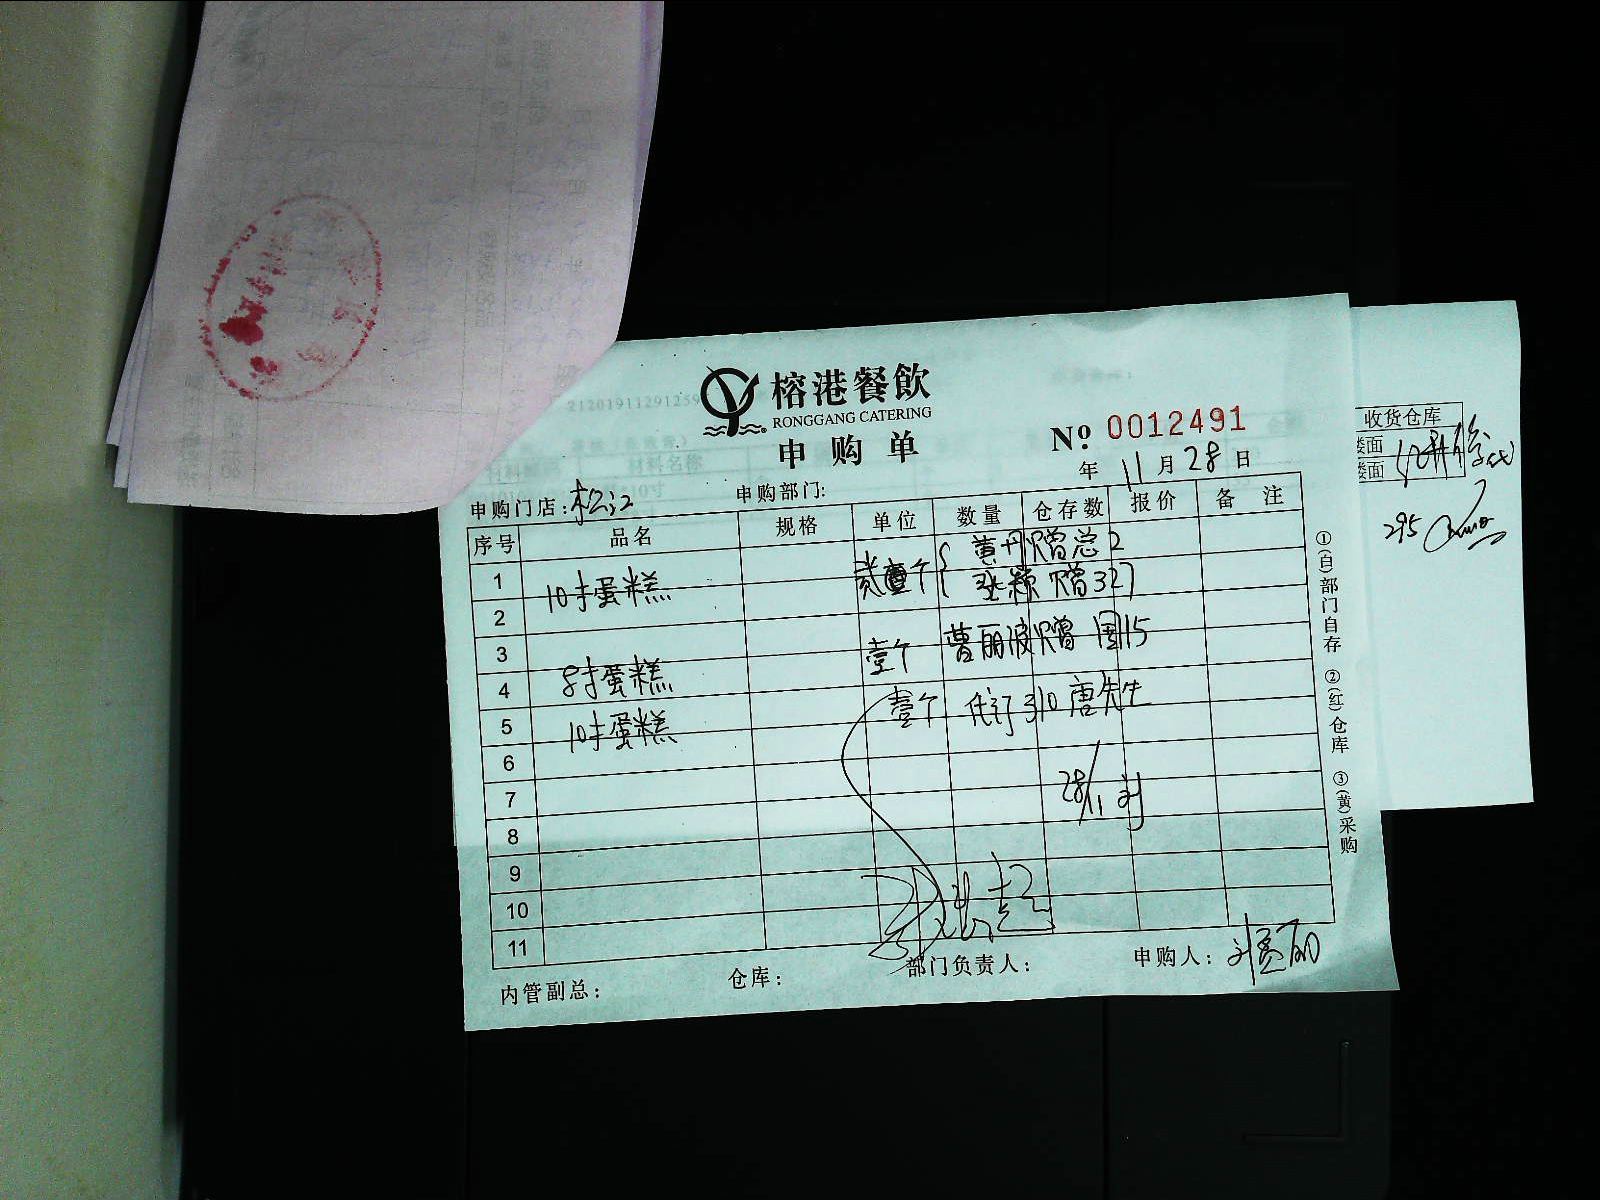 榕港餐飲
RONGGANG CATERING
申购单
Nº 0012491
年 11 月 28 日
申购门店：松江 申购部门：
序号 品名 规格 单位 数量 仓存数 报价 备注
1 10寸蛋糕 贰 个 黄丹赠总2
2 张颖赠327
3 壹个 曹丽波赠 国15
4 8寸蛋糕 壹个 代订310唐先生
5 10寸蛋糕
6
7 28/11 刘
8
9
10
11
内管副总： 仓库： 部门负责人： 申购人：
①(白)部门自存 ②(红)仓库 ③(黄)采购
21201911291259
材料名称
10寸
收货仓库
楼面
楼面
295